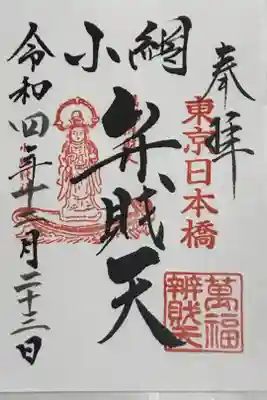 奉拝
東京日本橋
小網
弁財天
萬福
辨財天
令和四年十二月二十三日